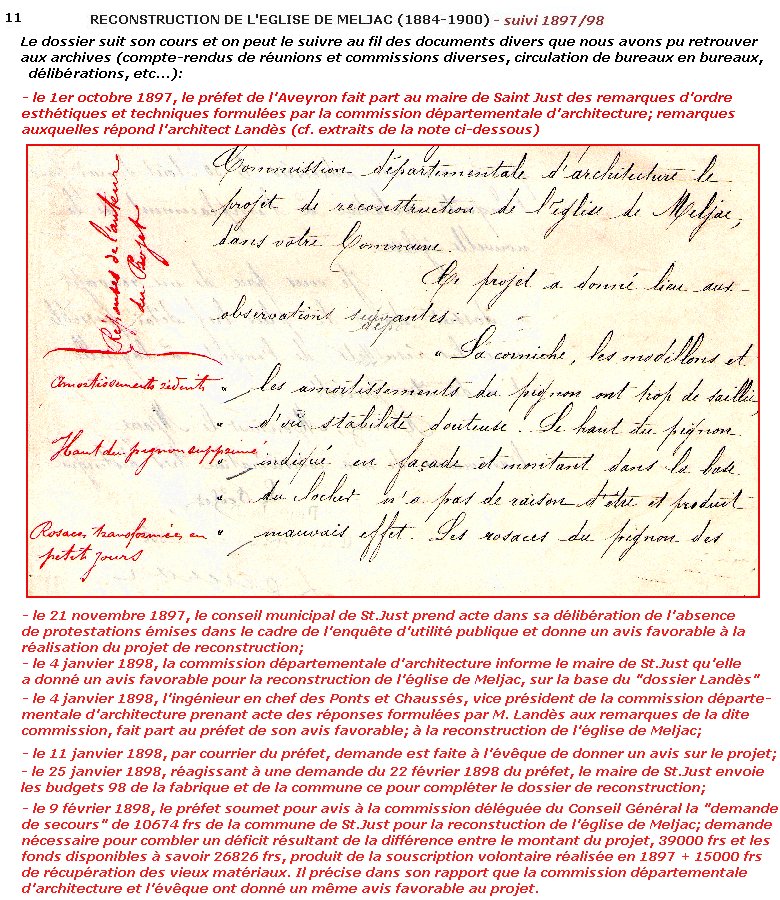 11 RECONSTRUCTION DE L'EGLISE DE MELJAC (1884-1900) - suivi 1897/98
Le dossier suit son cours et on peut le suivre au fil des documents divers que nous avons pu retrouver
aux archives (compte-rendus de réunions et commissions diverses, circulation de bureaux en bureaux,
délibérations, etc...):
- le 1er octobre 1897, le préfet de l'Aveyron fait part au maire de Saint Just des remarques d'ordre
esthétiques et techniques formulées par la commission départementale d'architecture; remarques
auxquelles répond l'architect Landès (cf. extraits de la note ci-dessous)
Réponses de l'auteur
du Projet
Commission départementale d'architecture le
projet de reconstruction de l'église de Meljac,
dans votre Commune.
Ce projet a donné lieu aux
observations suivantes
" La corniche, les modillons et
Amortissements réduits
" les amortissements du pignon ont trop de saillie,
" d'où stabilité douteuse. Le haut du pignon
Haut du pignon supprimé
" indiqué en façade et montant dans la base
" du clocher n'a pas de raison d'être et produit
Rosaces transformées en
petits jours
" mauvais effet. Les rosaces du pignon des
- le 21 novembre 1897, le conseil municipal de St.Just prend acte dans sa délibération de l'absence
de protestations émises dans le cadre de l'enquête d'utilité publique et donne un avis favorable à la
réalisation du projet de reconstruction;
- le 4 janvier 1898, la commission départementale d'architecture informe le maire de St.Just qu'elle
a donné un avis favorable pour la reconstruction de l'église de Meljac, sur la base du "dossier Landès"
- le 4 janvier 1898, l'ingénieur en chef des Ponts et Chaussés, vice président de la commission départe-
mentale d'architecture prenant acte des réponses formulées par M. Landès aux remarques de la dite
commission, fait part au préfet de son avis favorable; à la reconstruction de l'église de Meljac;
- le 11 janvier 1898, par courrier du préfet, demande est faite à l'évêque de donner un avis sur le projet;
- le 25 janvier 1898, réagissant à une demande du 22 février 1898 du préfet, le maire de St.Just envoie
les budgets 98 de la fabrique et de la commune ce pour compléter le dossier de reconstruction;
- le 9 février 1898, le préfet soumet pour avis à la commission déléguée du Conseil Général la "demande
de secours" de 10674 frs de la commune de St.Just pour la reconstuction de l'église de Meljac; demande
nécessaire pour combler un déficit résultant de la différence entre le montant du projet, 39000 frs et les
fonds disponibles à savoir 26826 frs, produit de la souscription volontaire réalisée en 1897 + 15000 frs
de récupération des vieux matériaux. Il précise dans son rapport que la commission départementale
d'architecture et l'évêque ont donné un même avis favorable au projet.